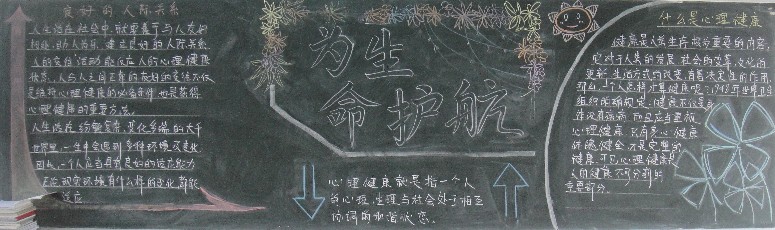 良好的人际关系
人生活在社会中,就要善于与人友好
相处,助人为乐,建立良好的人际关系
人的交往活动能反应人的心理健康
状态,人与人之间正常的友好的交往不仅
是维持心理健康的必备条件,也是获得
心理健康的重要方法。
人生活在纷繁复杂、变化多端的大千
世界里,一生中会遇到多种环境及变化
因此,一个人应当具有良好的适应能力
无论现实环境有什么样的变化,都能
适应
为生
命护航
心理健康就是指一个人
的心理、生理与社会处于相互
协调的和谐状态。
什么是心理健康
健康是人类生存极为重要的内容,
它对于人类的发展,社会的变革,文化的
更新,生活方式的改变,有着决定性的作用。
那么,一个人怎样才算健康呢?1948年世界卫生
组织明确规定:健康不仅是
没有疾病,而且应当重视
心理健康,只有身心健康
体魄健全,才是完整的
健康,可见心理健康是
人的健康不可分割的
重要部分。